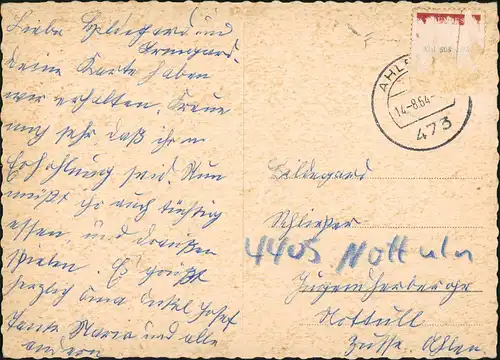 Liebe Hildegard und
Irmgard.
deine Karte haben
wir erhalten. Freue
uns sehr daß ihr in
Erhohlung seid. Nun
müßt ihr auch tüchtig
essen, und draußen
spielen. Es grüßt
herzlich Oma Onkel Josef
Tante Maria und alle
andern
AHL
14.-8.64.-
473
Hildegard
Schließer
4405 Nottuln
Jugendherberge
Nottull
Ahlen